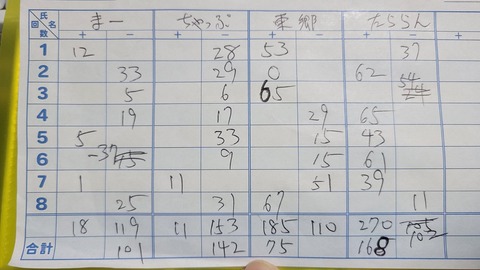 氏名 回数 まー ちゃっぷ 東郷 たららん
+ - + - + - + - +
1 12 28 53 37
2 33 29 0 62 54
3 5 6 65 24
4 19 17 29 65
5 5 33 15 43
6 -37 9 15 61
7 1 11 51 39
8 25 31 67 11
18 119 11 153 185 110 270 105 102
合計 101 142 75 168